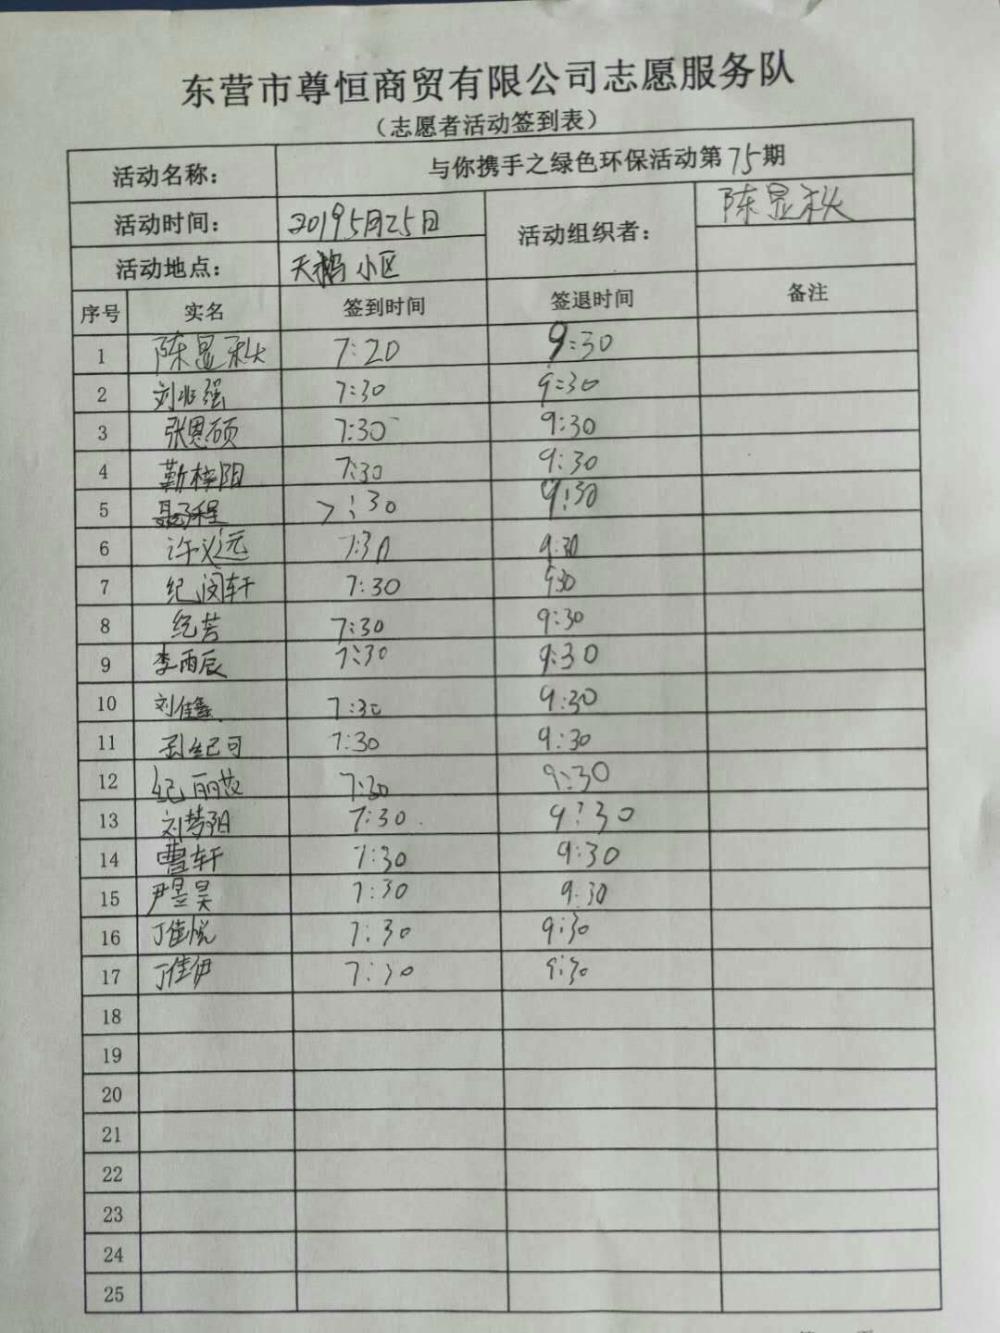 东营市尊恒商贸有限公司志愿服务队
（志愿者活动签到表）
活动名称： 与你携手之绿色环保活动第75期
活动时间： 20195月25日 活动组织者： 陈显秋
活动地点： 天鹅小区
序号 实名 签到时间 签退时间 备注
1 陈显秋 7:20 9:30
2 刘兆强 7:30 9:30
3 张恩硕 7:30 9:30
4 靳梓阳 7:30 9:30
5 聂子程 7:30 9:30
6 许义远 7:30 9:30
7 纪闵轩 7:30 930
8 纪芸 7:30 9:30
9 李雨辰 7:30 9:30
10 刘佳鑫 7:30 9:30
11 7:30 9:30
12 纪丽 7:30 9:30
13 刘梦阳 7:30 9:30
14 曹轩 7:30 9:30
15 尹昱昊 7:30 9:30
16 丁佳悦 7:30 9:30
17 丁佳伊 7:30 9:30
18
19
20
21
22
23
24
25